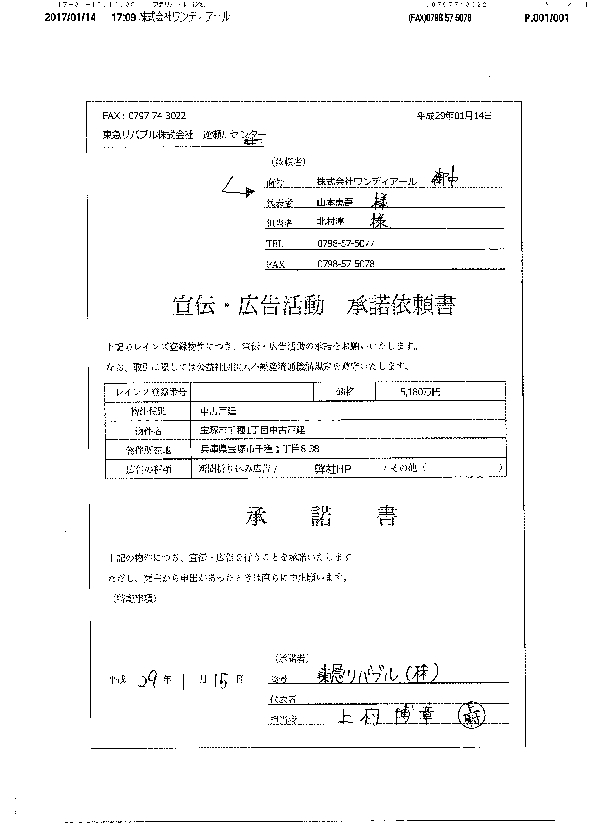 2017/01/14 17:09 株式会社ワンディアール (FAX)0798 57 5078 P.001/001
FAX：0797-74-3022 平成29年01月14日
東急リバブル株式会社 逆瀬川センター
（依頼者）
商号 株式会社ワンディアール 御中
代表者 様
担当者 北村 様
TEL 0798-57-5077
FAX 0798-57-5078
宣伝・広告活動 承諾依頼書
下記のレインズ登録物件につき、宣伝・広告活動の承諾をお願いいたします。
レインズ登録番号 価格 5,180万円
物件種別 中古戸建
物件名 宝塚市千種1丁目中古戸建
物件所在地 兵庫県宝塚市千種1丁目8-38
広告の種類 新聞折り込み広告 / 弊社HP / その他（ ）
承 諾 書
上記の物件につき、宣伝・広告を行うことを承諾いたします
ただし、売主から申出があったときは直ちに中止願います。
（特記事項）
（承諾者）
平成 29 年 1 月 15 日
商号 東急リバブル（株）
代表者
担当者 上村 博章